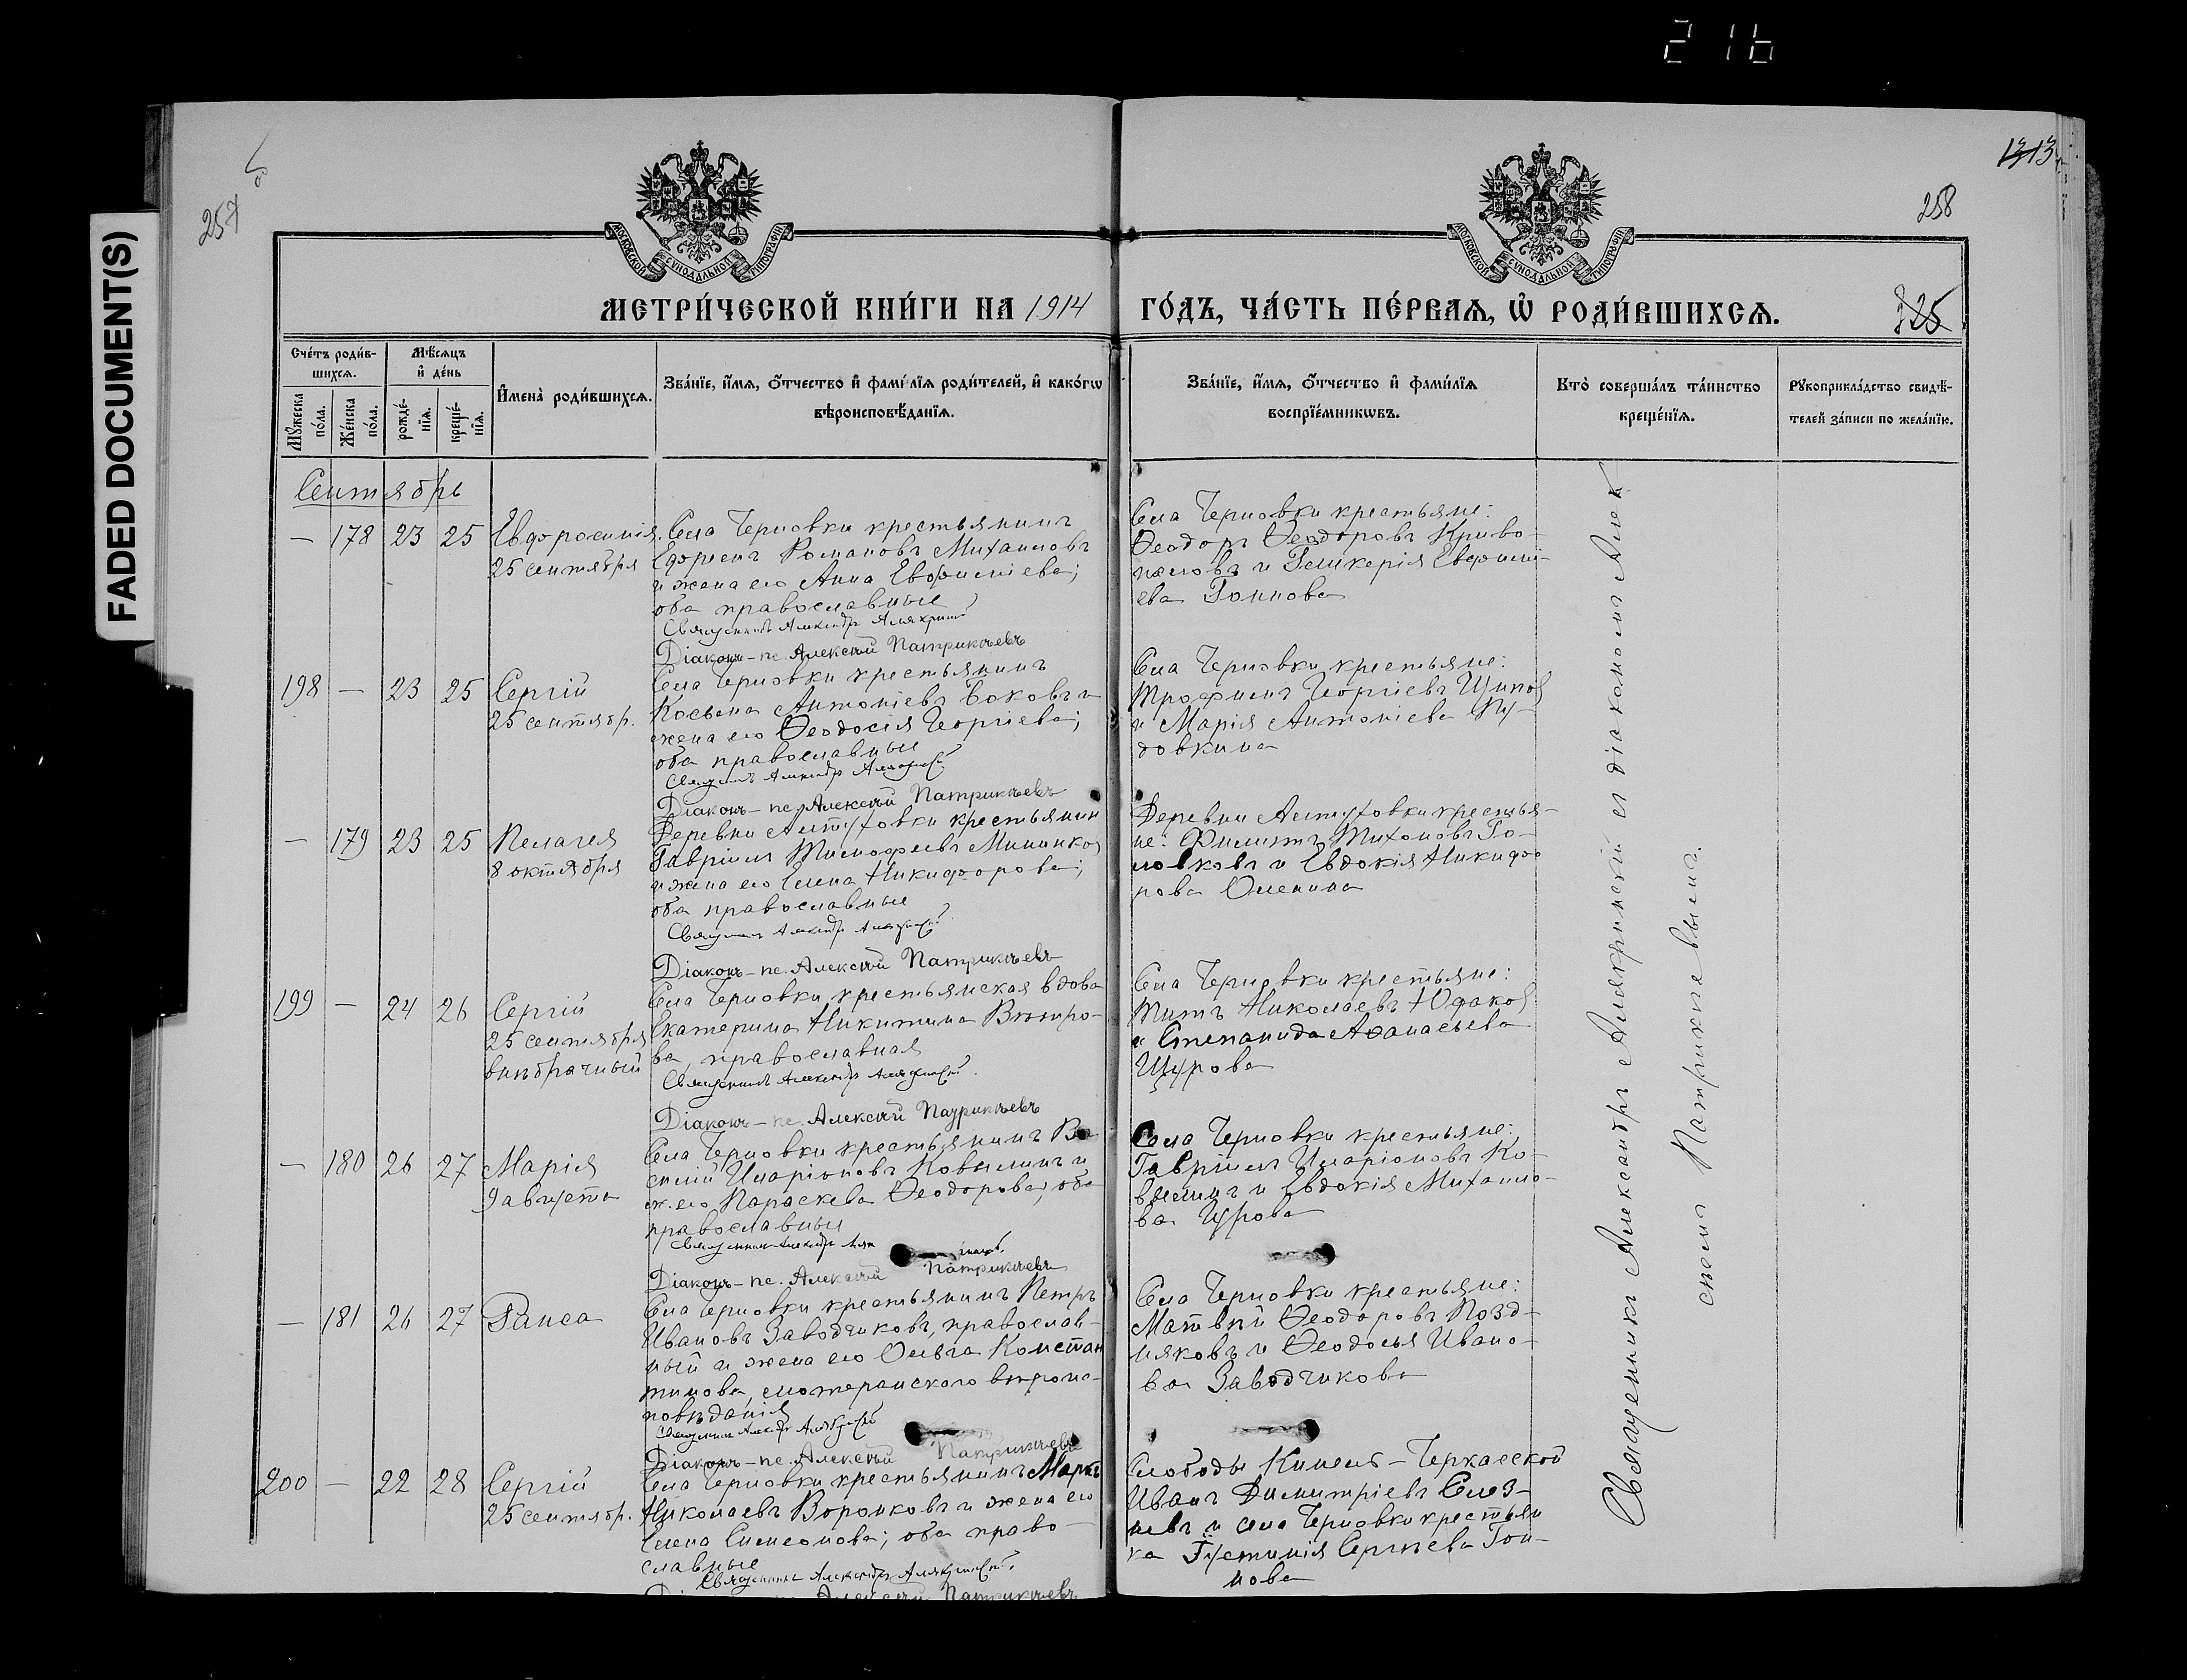 216
FADED DOCUMENT(S)
257
1313
258
325
МОСКОВСКОЙ СѴНОДАЛЬНОЙ ТИПОГРАФІИ
МОСКОВСКОЙ СѴНОДАЛЬНОЙ ТИПОГРАФІИ
МЕТРИ́ЧЕСКОЙ КНИ́ГИ НА 1914 ГО́ДЪ, ЧА́СТЬ ПЕ́РВАѦ, Ѽ РОДИ́ВШИХСѦ.
Сче́тъ роди́в-
шихсѧ.
Мꙋ́жеска
по́ла.
Же́нска
по́ла.
Мѣ́сѧцъ
и҆ де́нь
рожде́-
нїѧ.
креще́-
нїѧ.
И҆мена̀ роди́вшихсѧ.
Зва́нїе, и҆́мѧ, ѻ҆́тчество и҆ фамі́лїѧ роди́телей, и҆ како́гѡ
вѣроисповѣ́данїѧ.
Зва́нїе, и҆́мѧ, ѻ҆́тчество и҆ фами́лїѧ
воспрїе́мникѡвъ.
Кто̀ соверша́лъ та́инство
креще́нїѧ.
Рꙋкоприкла́дство свидѣ́-
телей за́писи по жела́нїю.
Сентябрь
— 178 23 25 Евфросинія
25 сентября
Села Черновки крестьянинъ
Ефремъ Романовъ Михайловъ
и жена его Анна Евфиміева;
оба православные
Священникъ Александръ Алякринскій
Діаконъ – пс. Алексѣй Патрикѣевъ
Села Черновки крестьяне:
Ѳеодоръ Ѳеодоровъ Криво-
и Гликерія Евфимі-
ева Гоннова
198 — 23 25 Сергій
25 сентябр.
Села Черновки крестьянинъ
Косьма Антоніевъ Боковъ и
жена его Ѳеодосія Георгіева;
оба православные
Священникъ Александръ Алякринскій
Діаконъ – пс. Алексѣй Патрикѣевъ
Села Черновки крестьяне:
Трофимъ Георгіевъ
и Марія Антоніева Пу-
довкина
— 179 23 25 Пелагея
8 октября
Деревни крестьянин
Гавріилъ Тимофеевъ
и жена его Елена Никифорова;
оба православные
Священникъ Александръ Алякринскій
Діаконъ – пс. Алексѣй Патрикѣевъ
Деревни крестья-
не: Филиппъ Тихоновъ Го-
ловковъ и Евдокія Никифо
рова Оленина
199 — 24 26 Сергій
25 сентября
внѣбрачный
Села Черновки крестьянская вдова
Екатерина Никитина Вѣтро-
ва, православная
Священникъ Александръ Алякринскій
Діаконъ – пс. Алексѣй Патрикѣевъ
Села Черновки крестьяне:
Титъ Николаевъ Юдаков
и Степанида Аѳанасьева
Щурова
— 180 26 27 Марія
9 августа
Села Черновки крестьянинъ Ва-
силій Иларіоновъ Ковылинъ и
ж. его Параскева Ѳеодорова; оба
православные
Священникъ Александръ
Діаконъ – пс. Алексѣй Патрикѣевъ
Села Черновки крестьяне:
Гавріилъ Иларіоновъ Ко-
вылинъ и Евдокія Михаило-
ва Щурова
— 181 26 27 Раиса
Села Черновки крестьянинъ Петръ
Ивановъ Заводчиковъ, православ-
ный и жена его Ольга Констан
тинова, лютеранского вѣроис-
повѣданія
Священникъ Александръ Алякринскій
Діаконъ – пс. Алексѣй Патрикѣевъ
Села Черновки крестьяне:
Матвѣй Ѳеодоровъ Позд-
няковъ и Ѳеодосья Ивано-
ва Заводчикова
200 — 22 28 Сергій
25 сентябр.
Села Черновки крестьянинъ Маркъ
Николаевъ Воронковъ и жена его
Елена Симеонова; оба право-
славные
Священникъ Александръ Алякринскій
Алексѣй Патрикѣевъ
Слободы Кинель-Черкасской
Иванъ Димитріевъ Слез-
невъ и села Черновки крестьян
ка Іустинія Сергѣева Гон-
нова
Священникъ Александръ Алякринскій съ діакономъ Алек
сѣемъ Патрикѣевымъ.